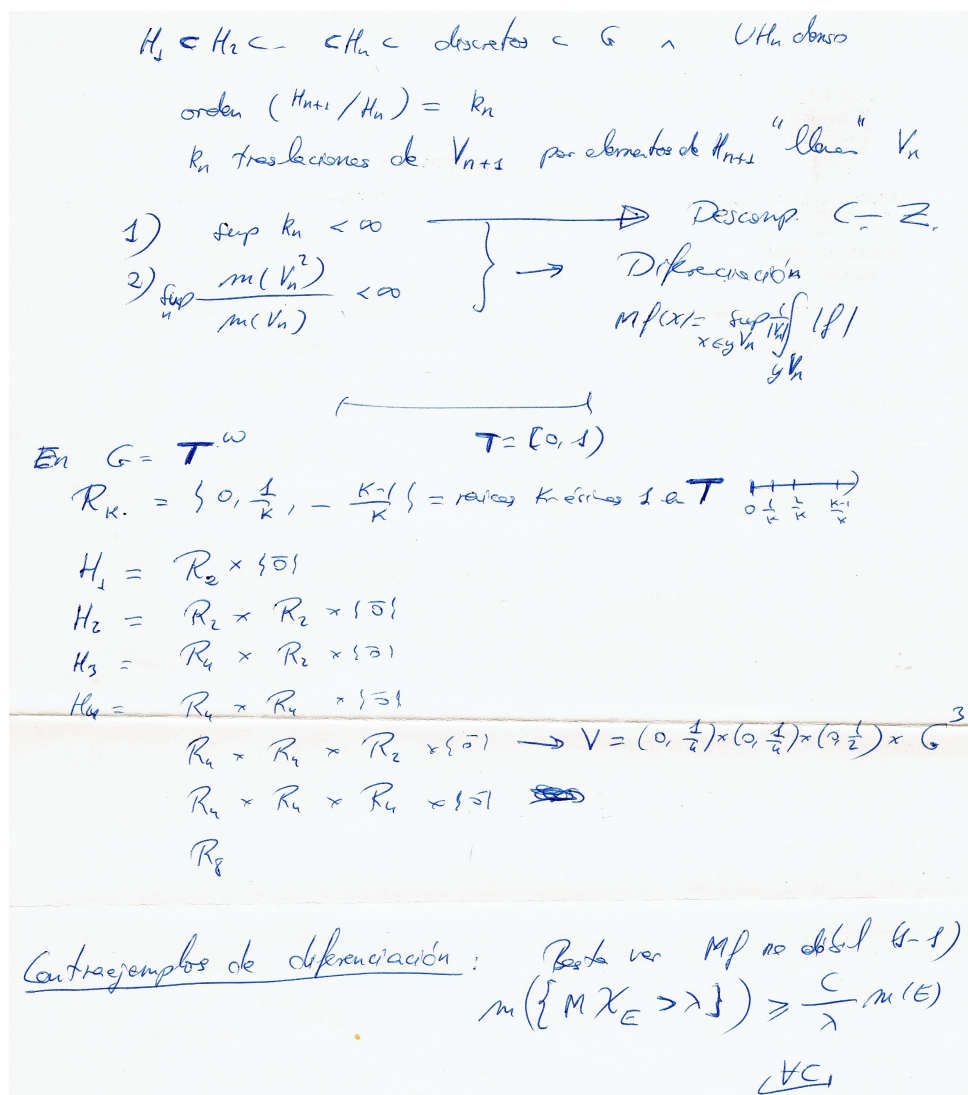 H₁ ⊂ H₂ ⊂ - ⊂ Hₙ ⊂ discretos ⊂ G ∧ ∪Hₙ denso
orden (Hₙ₊₁/Hₙ) = kₙ
kₙ traslaciones de Vₙ₊₁ por elementos de Hₙ₊₁ "llenan" Vₙ
1) sup kₙ < ∞ → Descomp. C-Z.
2) supₙ m(Vₙ²)/m(Vₙ) < ∞ } → Diferenciación
Mf(x) = sup_{x∈yVₙ} 1/|Vₙ| ∫_{yVₙ} |f|
En G = T^ω T = [0, 1)
R_K. = {0, 1/K, - K-1/K} = raices K-ésimas 1 en T 0 1/K 2/K K-1/K
H₁ = R₂ × {0̄}
H₂ = R₂ × R₂ × {0̄}
H₃ = R₄ × R₂ × {0̄}
H₄ = R₄ × R₄ × {0̄}
R₄ × R₄ × R₂ × {0̄} → V = (0, 1/4) × (0, 1/4) × (0, 1/2) × G³
R₄ × R₄ × R₄ × {0̄}
R₈
Contraejemplos de diferenciación : Basta ver Mf no débil (1-1)
m({M χ_E > λ}) ≥ C/λ m(E)
∀C